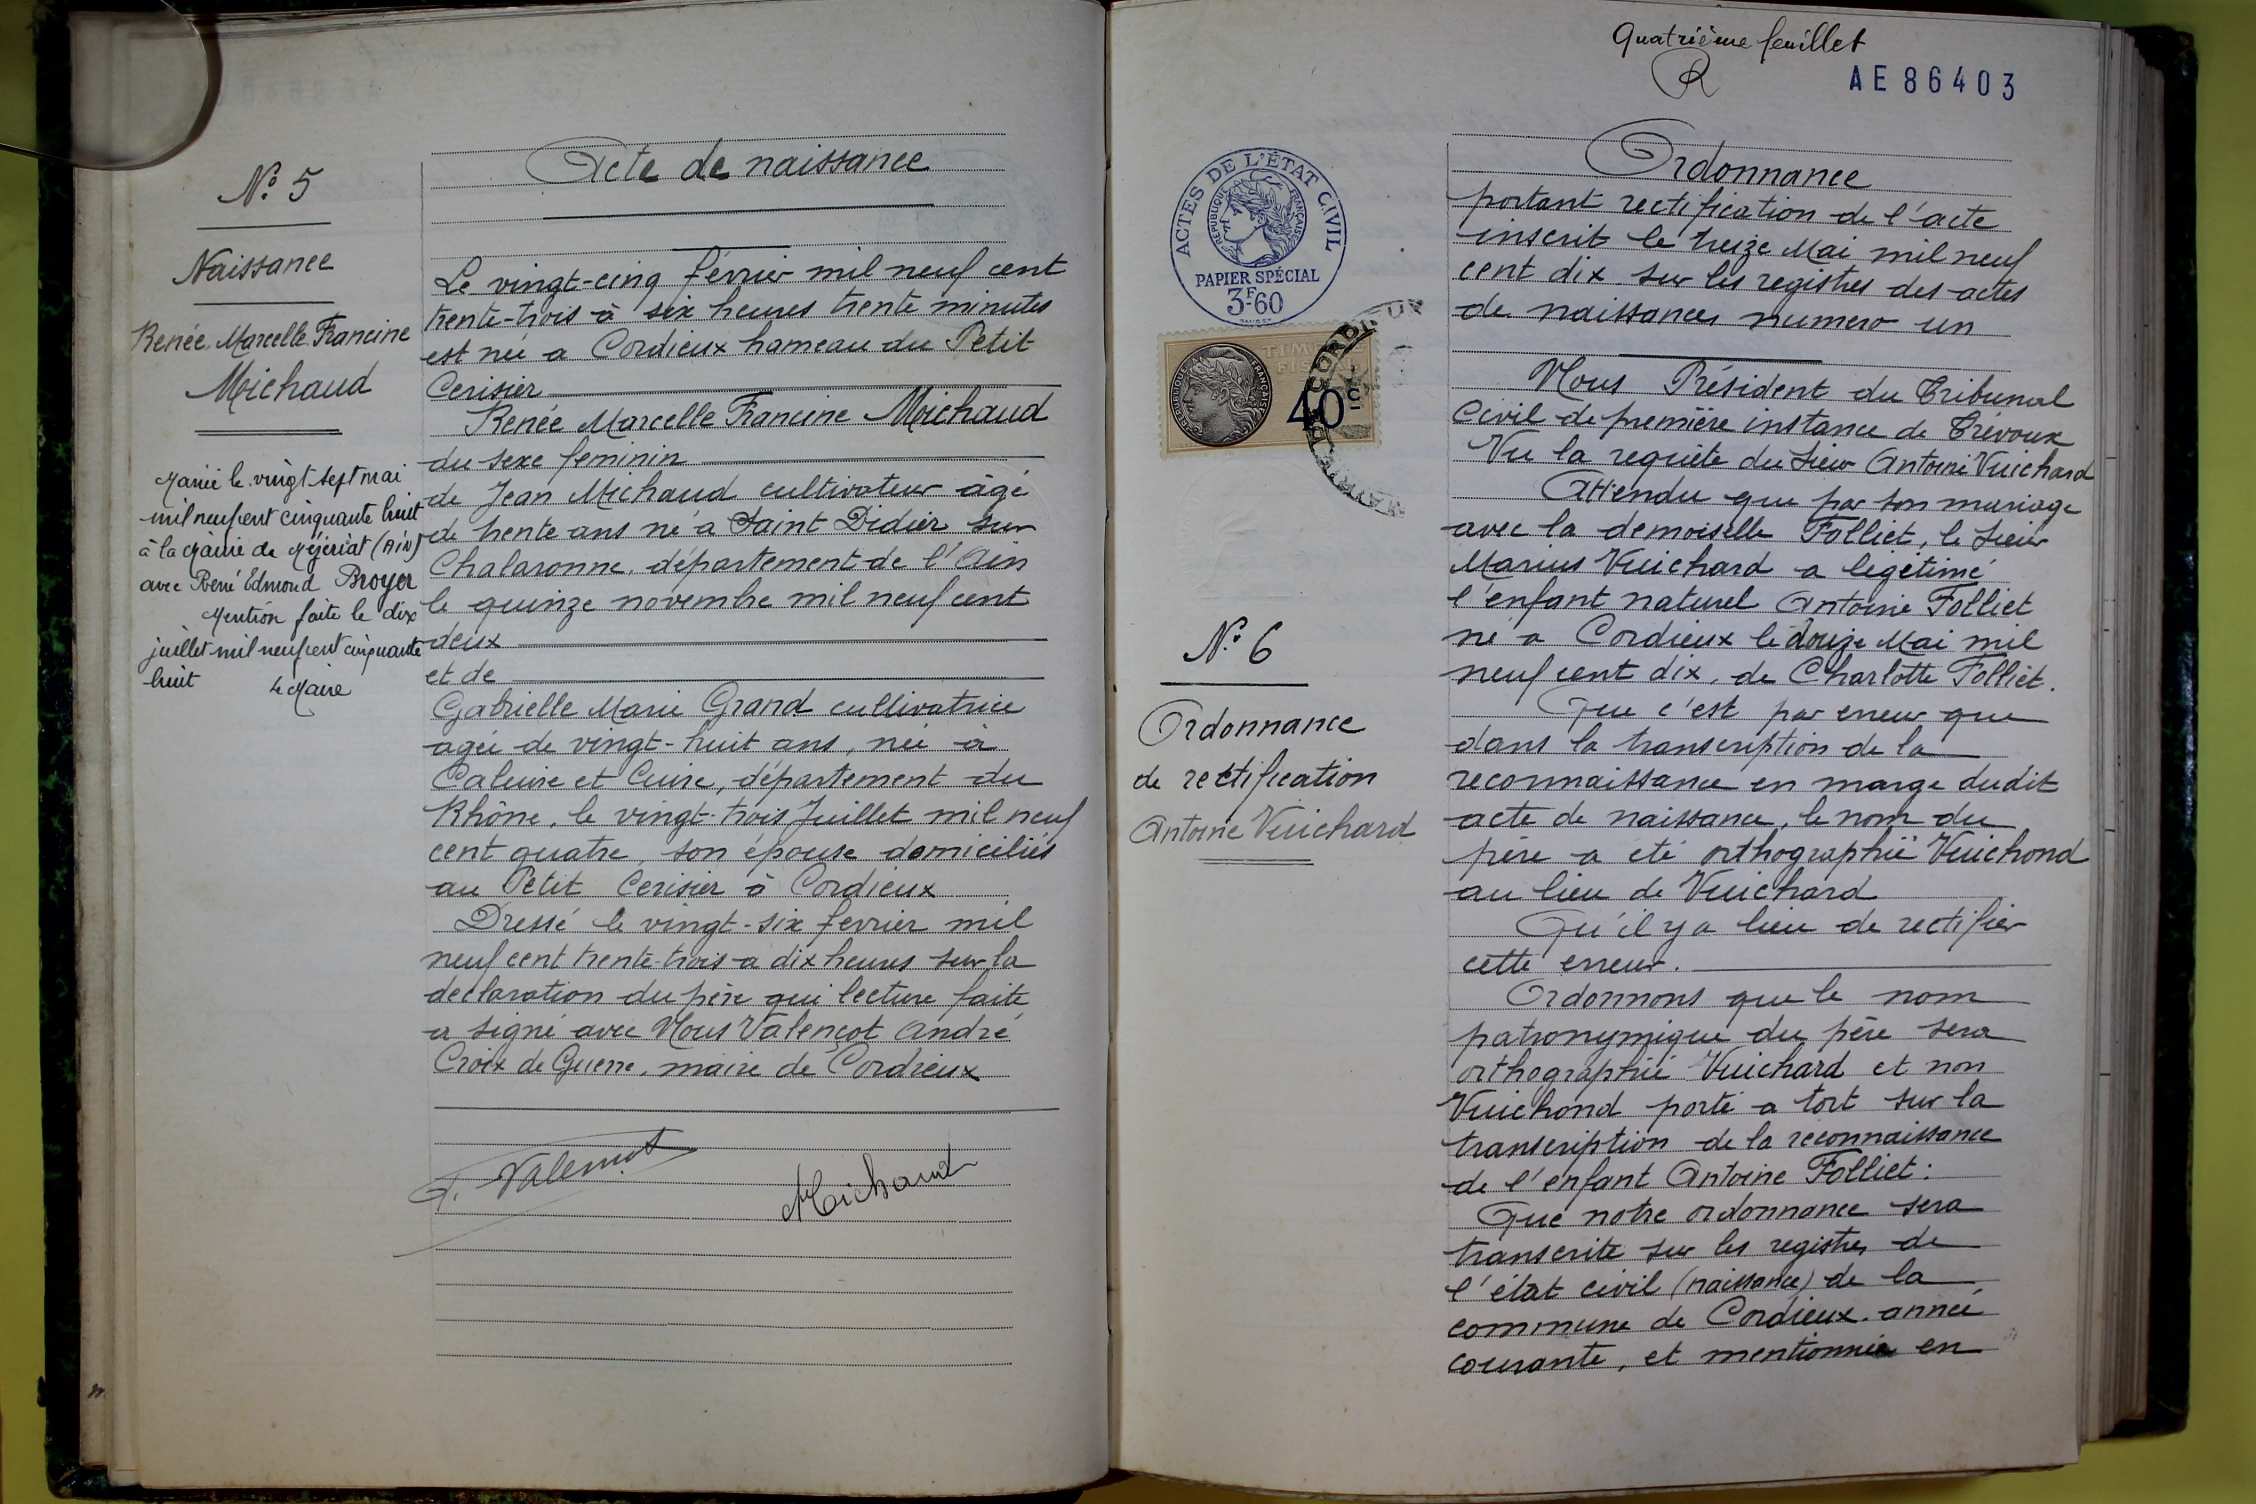 N° 5
Naissance
Renée Marcelle Francine
Michaud
Mariée le vingt sept mai
mil neuf cent cinquante huit
à la Mairie de Mézériat (Ain)
avec René Edmond Broyer
Mention faite le dix
juillet mil neuf cent cinquante
huit le Maire
Acte de naissance
Le vingt-cinq février mil neuf cent
trente-trois à six heures trente minutes
est née a Cordieux hameau du Petit
Cerisier
Renée Marcelle Francine Michaud
du sexe feminin
de Jean Michaud cultivateur âgé
de trente ans né a Saint Didier sur
Chalaronne, département de l'Ain
le quinze novembre mil neuf cent
deux
et de
Gabrielle Marie Grand cultivatrice
agée de vingt-huit ans, née à
Caluire et Cuire, département du
Rhône, le vingt-trois Juillet mil neuf
cent quatre, son épouse domiciliés
au Petit Cerisier à Cordieux
Dressé le vingt-six fevrier mil
neuf cent trente-trois a dix heures sur la
declaration du père qui lecture faite
a signé avec Nous Valençot André
Croix de Guerre, maire de Cordieux
A. Valençot
Michaud
Quatrième feuillet
AE 86403
ACTES DE L'ÉTAT CIVIL
RÉPUBLIQUE FRANÇAISE
PAPIER SPÉCIAL
3F60
TIMBRE
FISCAL
RÉPUBLIQUE FRANÇAISE
40c
MAIRIE DE CORDIEUX
N° 6
Ordonnance
de rectification
Antoine Vuichard
Ordonnance
portant rectification de l'acte
inscrit le treize Mai mil neuf
cent dix sur les registres des actes
de naissances numero un
Nous Président du Tribunal
Civil de première instance de Trévoux
Vu la requête du sieur Antoine Vuichard
Attendu que par son mariage
avec la demoiselle Folliet, le sieur
Marius Vuichard a légitimé
l'enfant naturel Antoine Folliet
né a Cordieux le douze Mai mil
neuf cent dix, de Charlotte Folliet.
Que c'est par erreur que
dans la transcription de la
reconnaissance en marge dudit
acte de naissance, le nom du
père a été orthographié Vuichond
au lieu de Vuichard
Qu'il y a lieu de rectifier
cette erreur.
Ordonnons que le nom
patronymique du père sera
orthographié Vuichard et non
Vuichond porté a tort sur la
transcription de la reconnaissance
de l'enfant Antoine Folliet:
Que notre ordonnance sera
transcrite sur les registres de
l'état civil (naissance) de la
commune de Cordieux année
courante, et mentionnée en